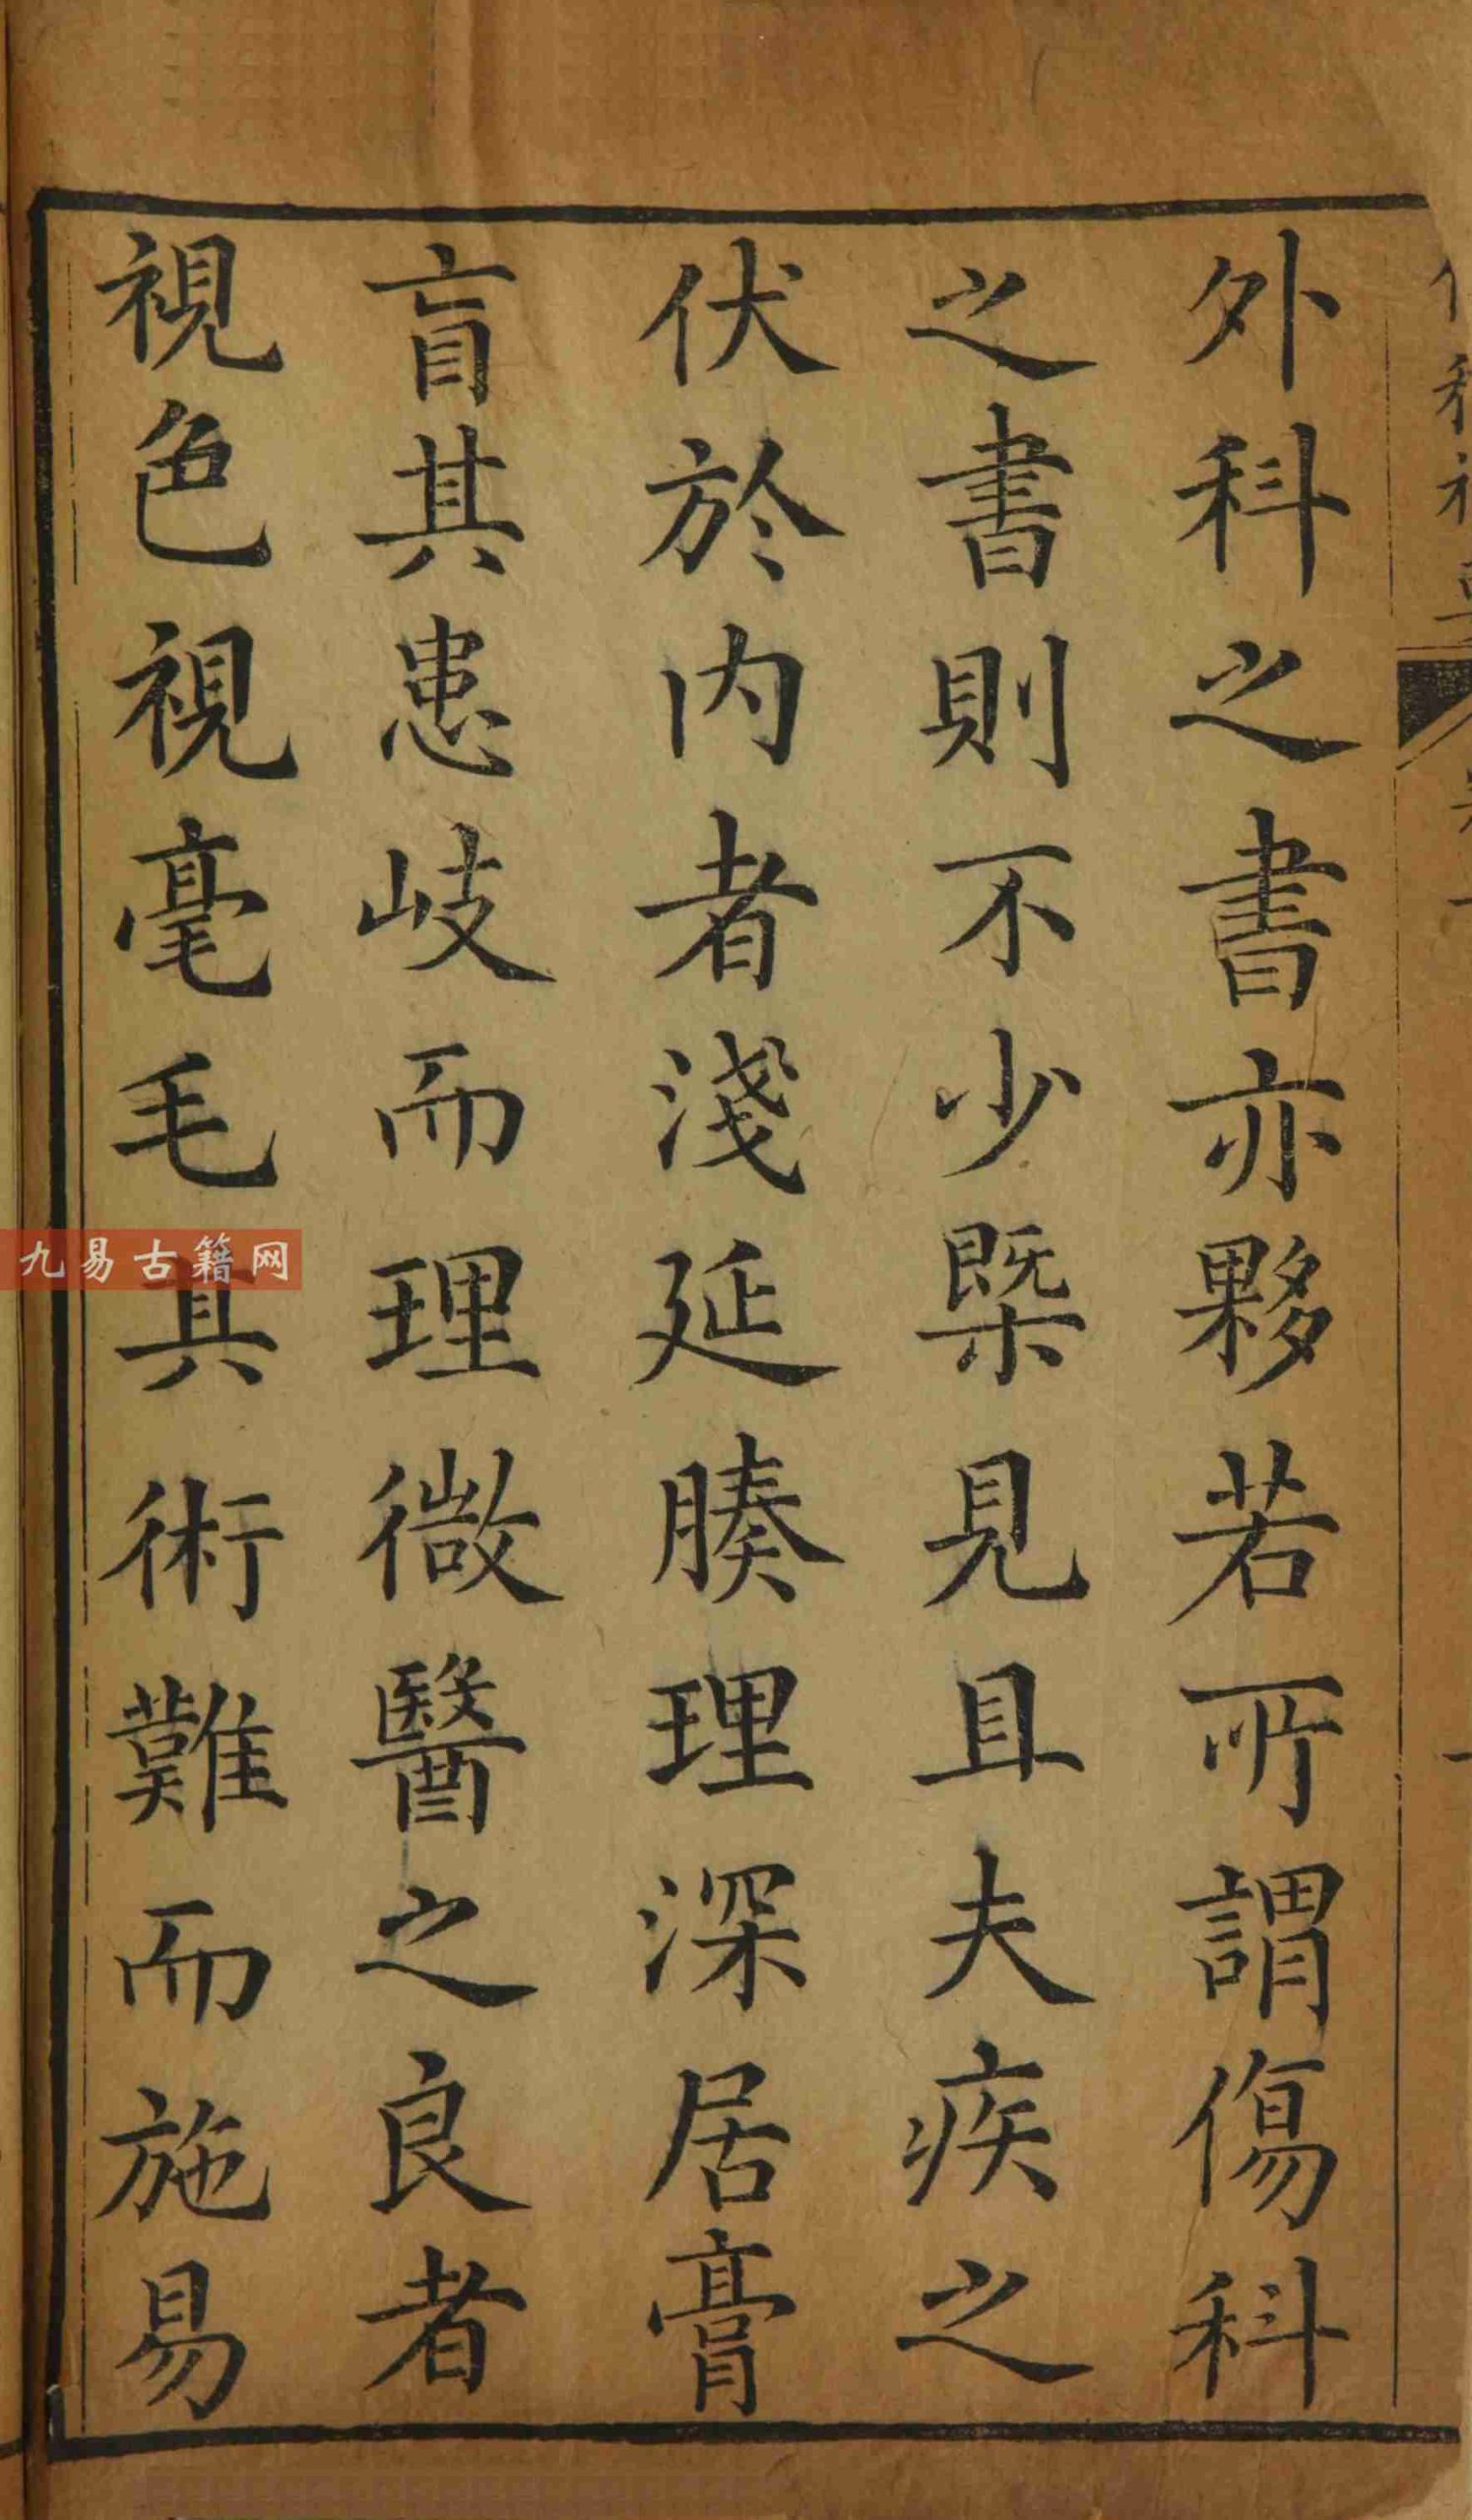 外科之書亦夥若所謂傷科
之書則不少槩見且夫疾之
伏於内者淺延腠理深居膏
肓其患岐而理微醫之良者
視色視毫毛其術難而施易
九易古籍网